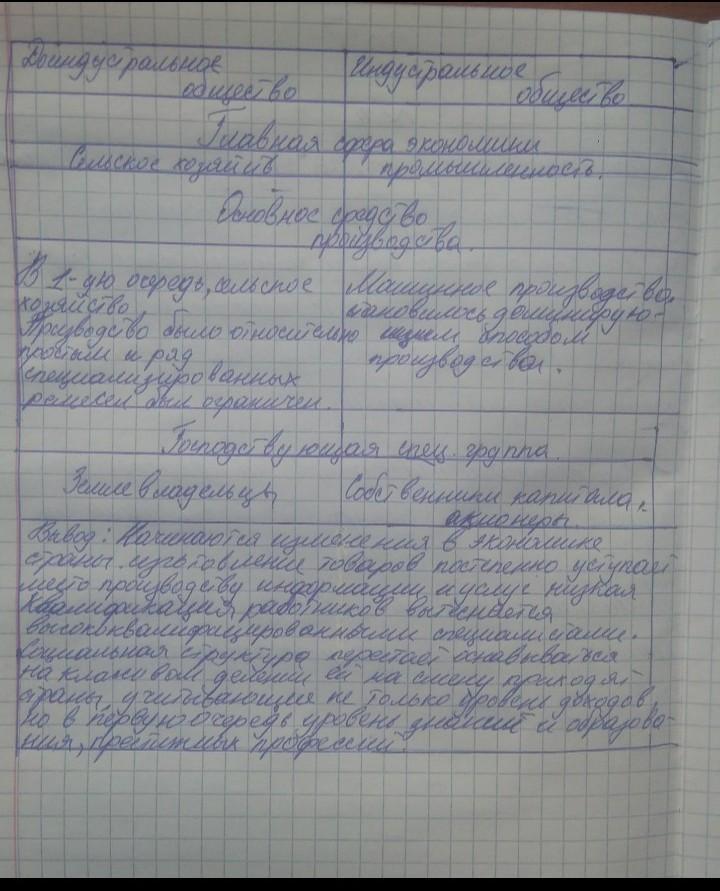 Доиндустральное
общество
Индустральное
общество
Главная сфера экономики
Сельское хозяйств
промышленность.
Основное средство
производства.
В 1-ую очередь, сельское
хозяйство
Призводство было относительно
простым и ряд
специализированных
ремесел был ограничен.
Машинное производство
становилось домунирую-
щим способом
производства.
Господствующая спец. группа.
Землевладельцы
Собственники капитала,
акционеры.
Вывод: Начинаются изменения в экономике
страны. изготовление товаров постепенно уступает
место производству информации и услуг низкая
квалификация работников вытесняется
высококвалифицированными специалистами.
Социальная структура перестаёт основываться
на классовом делении ей на смену приходят
страны, учитывающие не только уровень доходов,
но в первую очередь уровень знаний и образова-
ния, престижных профессий.